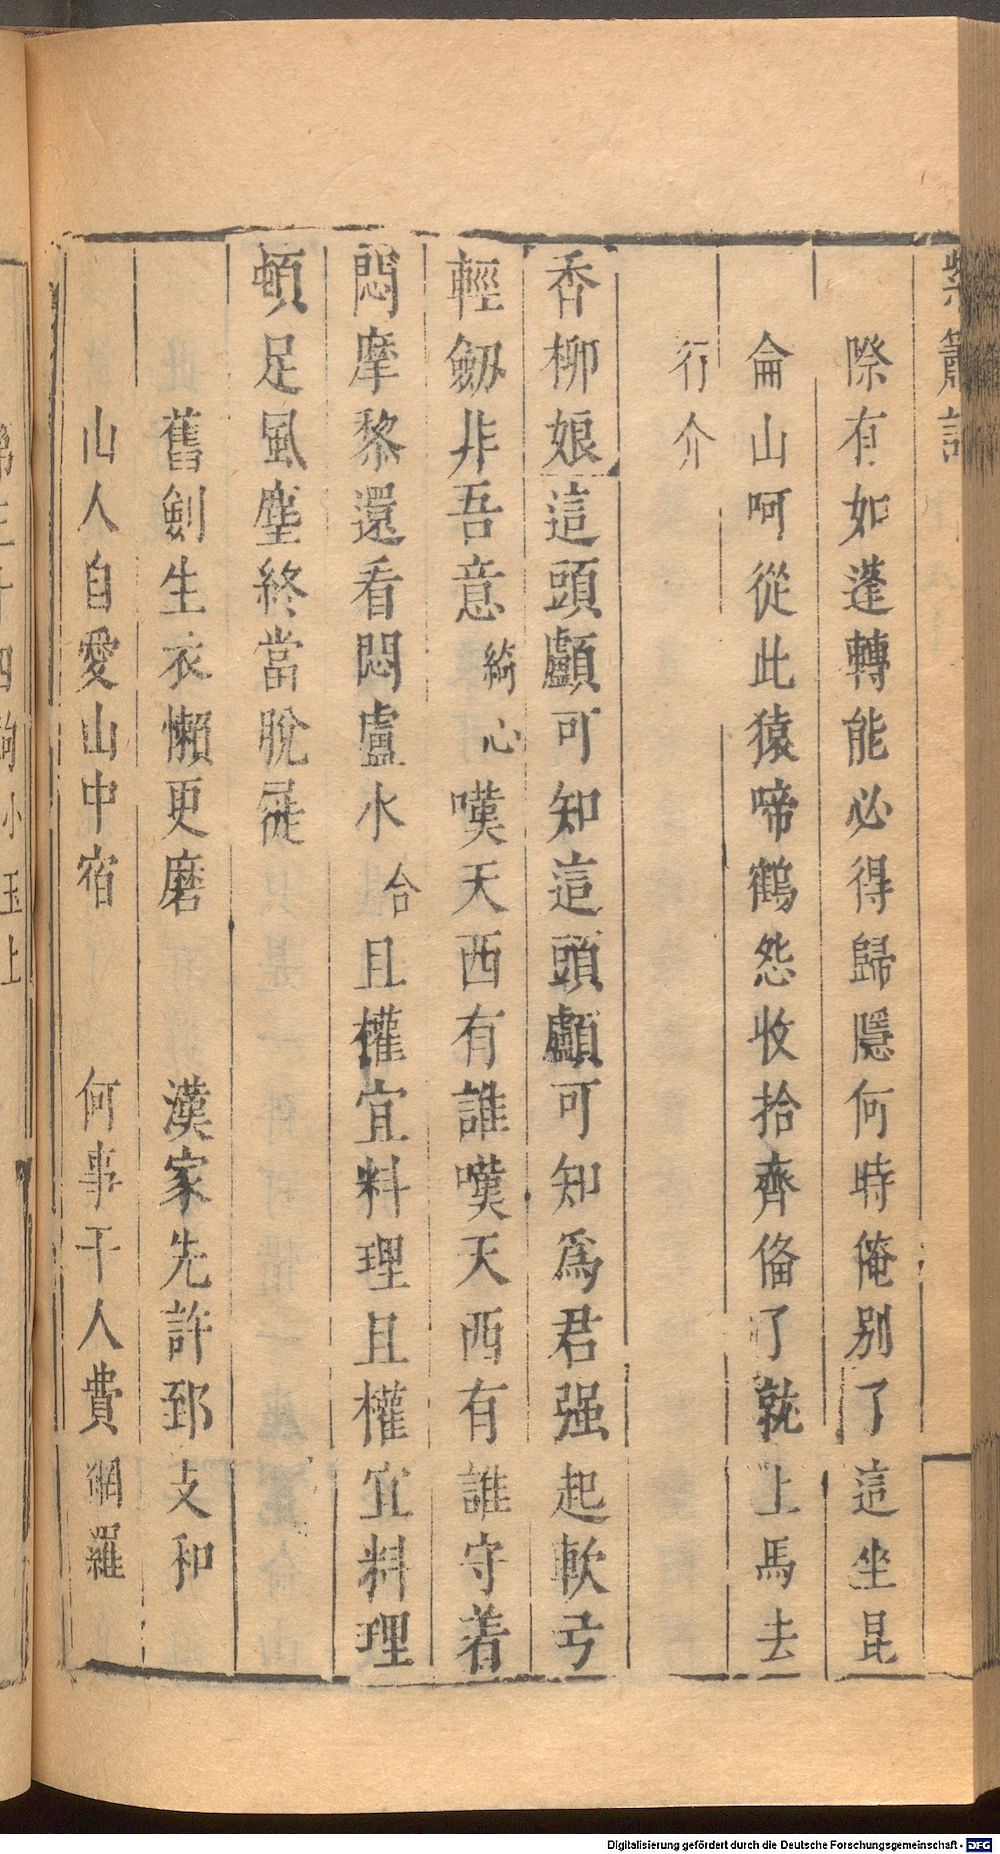 紫簫記
際有如蓬轉能必得歸隱何時俺別了這坐昆
侖山呵從此猿啼鶴怨收拾齊俻了就上馬去
行介
香柳娘這頭顱可知這頭顱可知爲君强起軟弓
輕劔非吾意綺心嘆天西有誰嘆天西有誰守着
悶摩黎還看悶盧水合且權宜料理且權宜料理
頓足風塵終當脫屣
舊劍生衣懶更磨 漢家先許郅支和
山人自愛山中宿 何事干人費網羅
第三十四齣小玉上
Digitalisierung gefördert durch die Deutsche Forschungsgemeinschaft - DFG